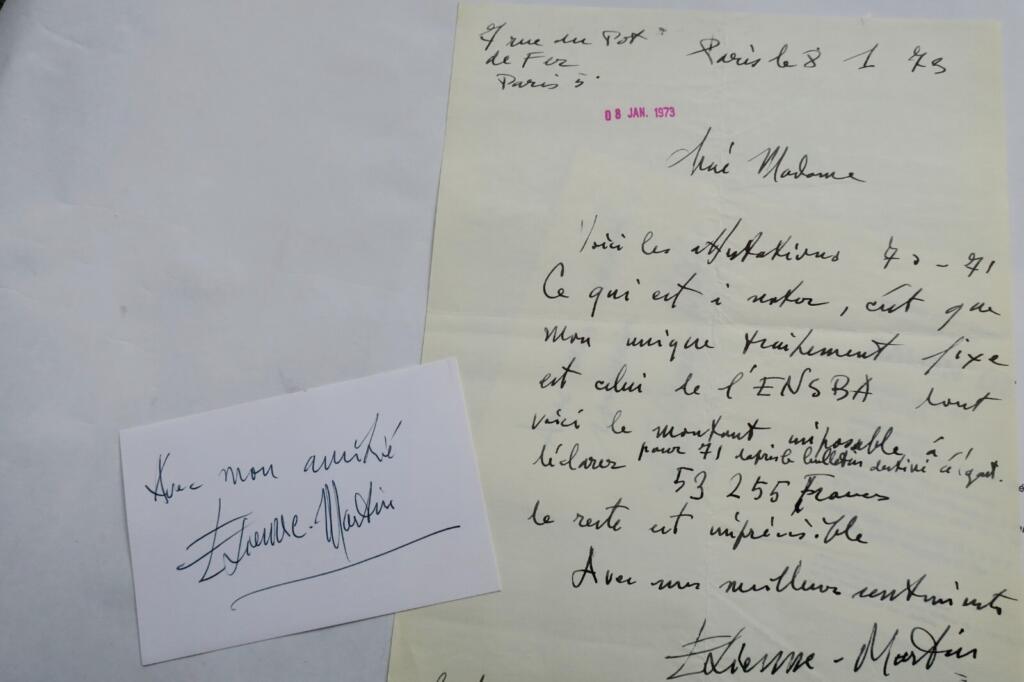 7 rue du Pot
de Fer
Paris 5
Paris le 8 1 73
08 JAN. 1973
Madame
Voici les attestations 70-71
Ce qui est à noter, c'est que
mon unique traitement fixe
est celui de l'ENSBA dont
voici le montant imposable à
déclarer pour 71 d'après le bulletin destiné à
53 255 Francs
le reste est imprévisible
Avec mes meilleurs sentiments
Etienne-Martin
Avec mon amitié
Etienne-Martin